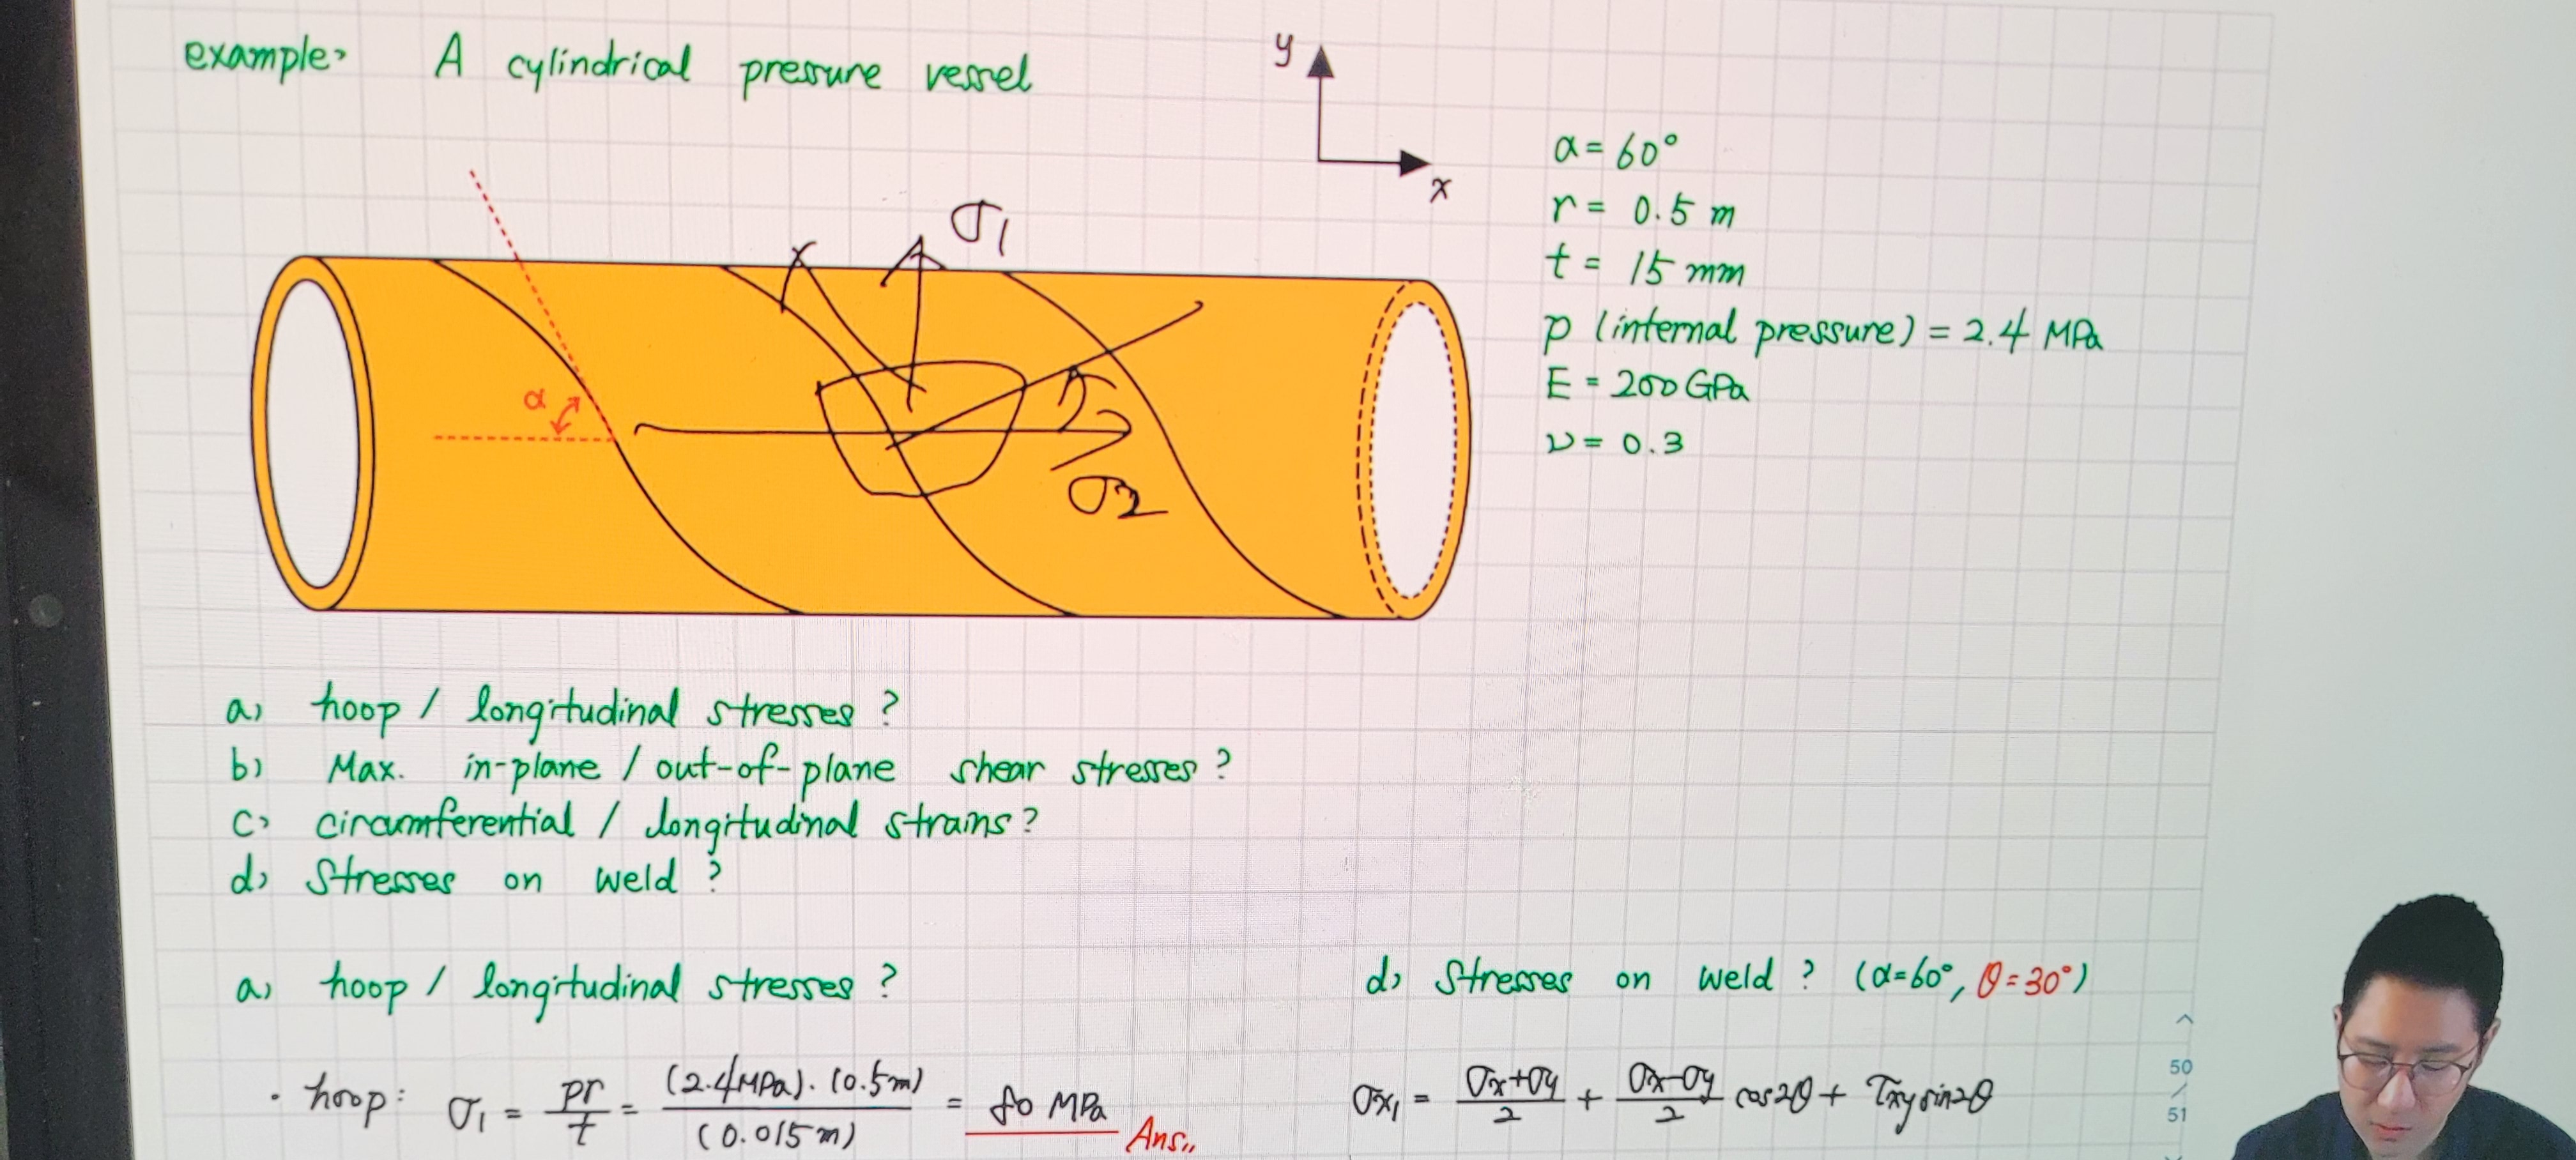 example> A cylindrical pressure vessel
y
x
α = 60°
r = 0.5 m
t = 15 mm
p (internal pressure) = 2.4 MPa
E = 200 GPa
ν = 0.3
σ1
α
σ2
a) hoop / longitudinal stresses ?
b) Max. in-plane / out-of-plane shear stresses ?
c) circumferential / longitudinal strains ?
d) Stresses on weld ?
a) hoop / longitudinal stresses ?
· hoop : σ1 = pr/t = (2.4MPa)·(0.5m)/(0.015m) = 80 MPa Ans,,
d) Stresses on weld ? (α=60°, θ=30°)
σx1 = (σx+σy)/2 + (σx-σy)/2 cos2θ + τxy sin2θ
50
/
51